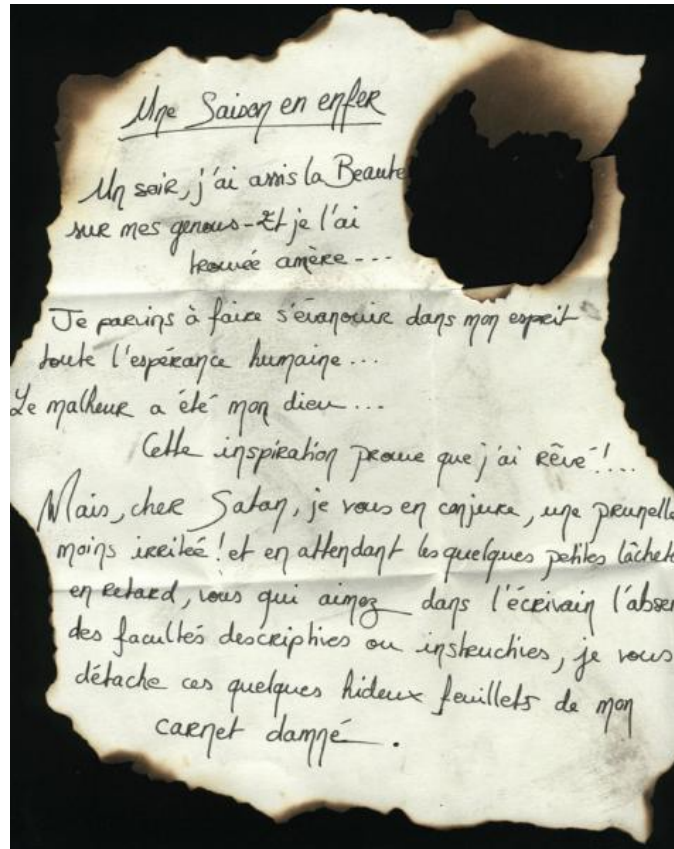 Une Saison en enfer
Un soir, j'ai assis la Beauté
sur mes genous - Et je l'ai
trouvée amère ---
Je parvins à faire s'évanouir dans mon esprit
toute l'espérance humaine...
Le malheur a été mon dieu...
Cette inspiration prouve que j'ai rêvé !...
Mais, cher Satan, je vous en conjure, une prunelle
moins irritée ! et en attendant les quelques petites lâcheté
en retard, vous qui aimez dans l'écrivain l'absen
des facultés descriptives ou instructives, je vous
détache ces quelques hideux feuillets de mon
carnet damné.